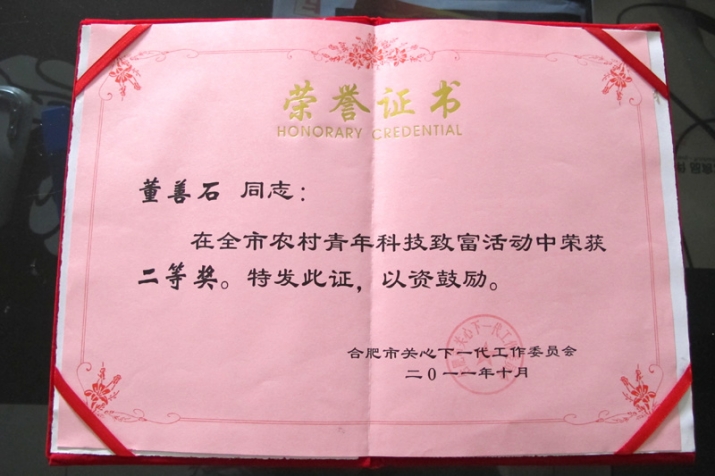 荣誉证书
HONORARY CREDENTIAL
董善石 同志：
在全市农村青年科技致富活动中荣获
二等奖。特发此证，以资鼓励。
合肥市关心下一代工作委员会
二〇一一年十月